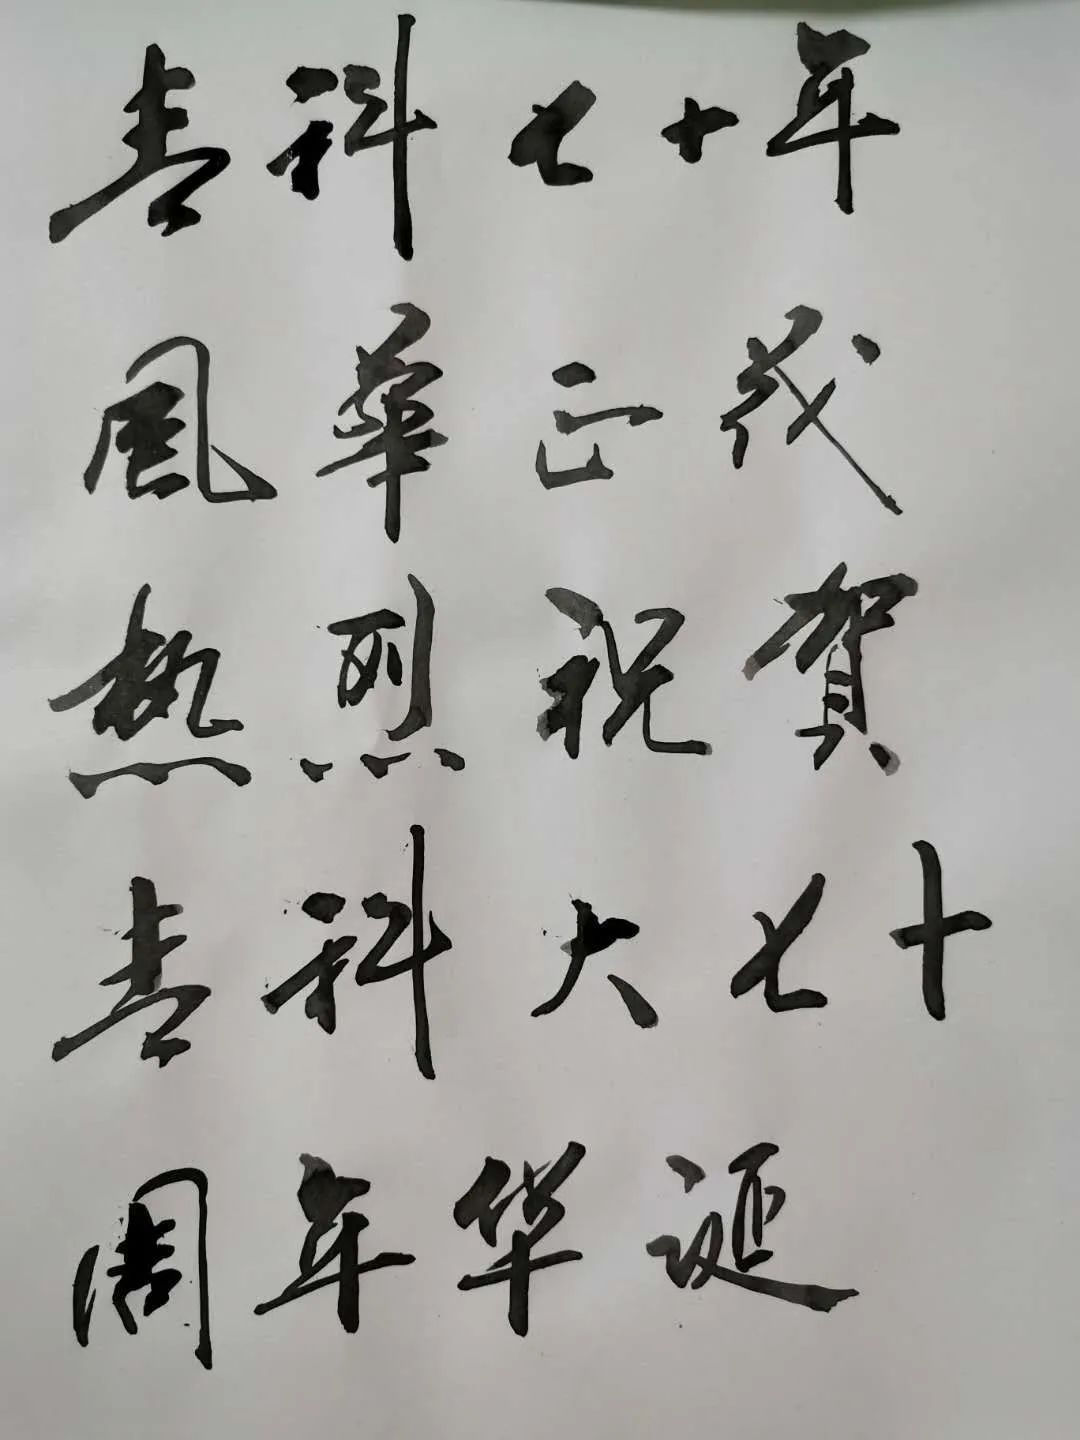 青科七十年
風華正茂
热烈祝賀
青科大七十
周年华诞